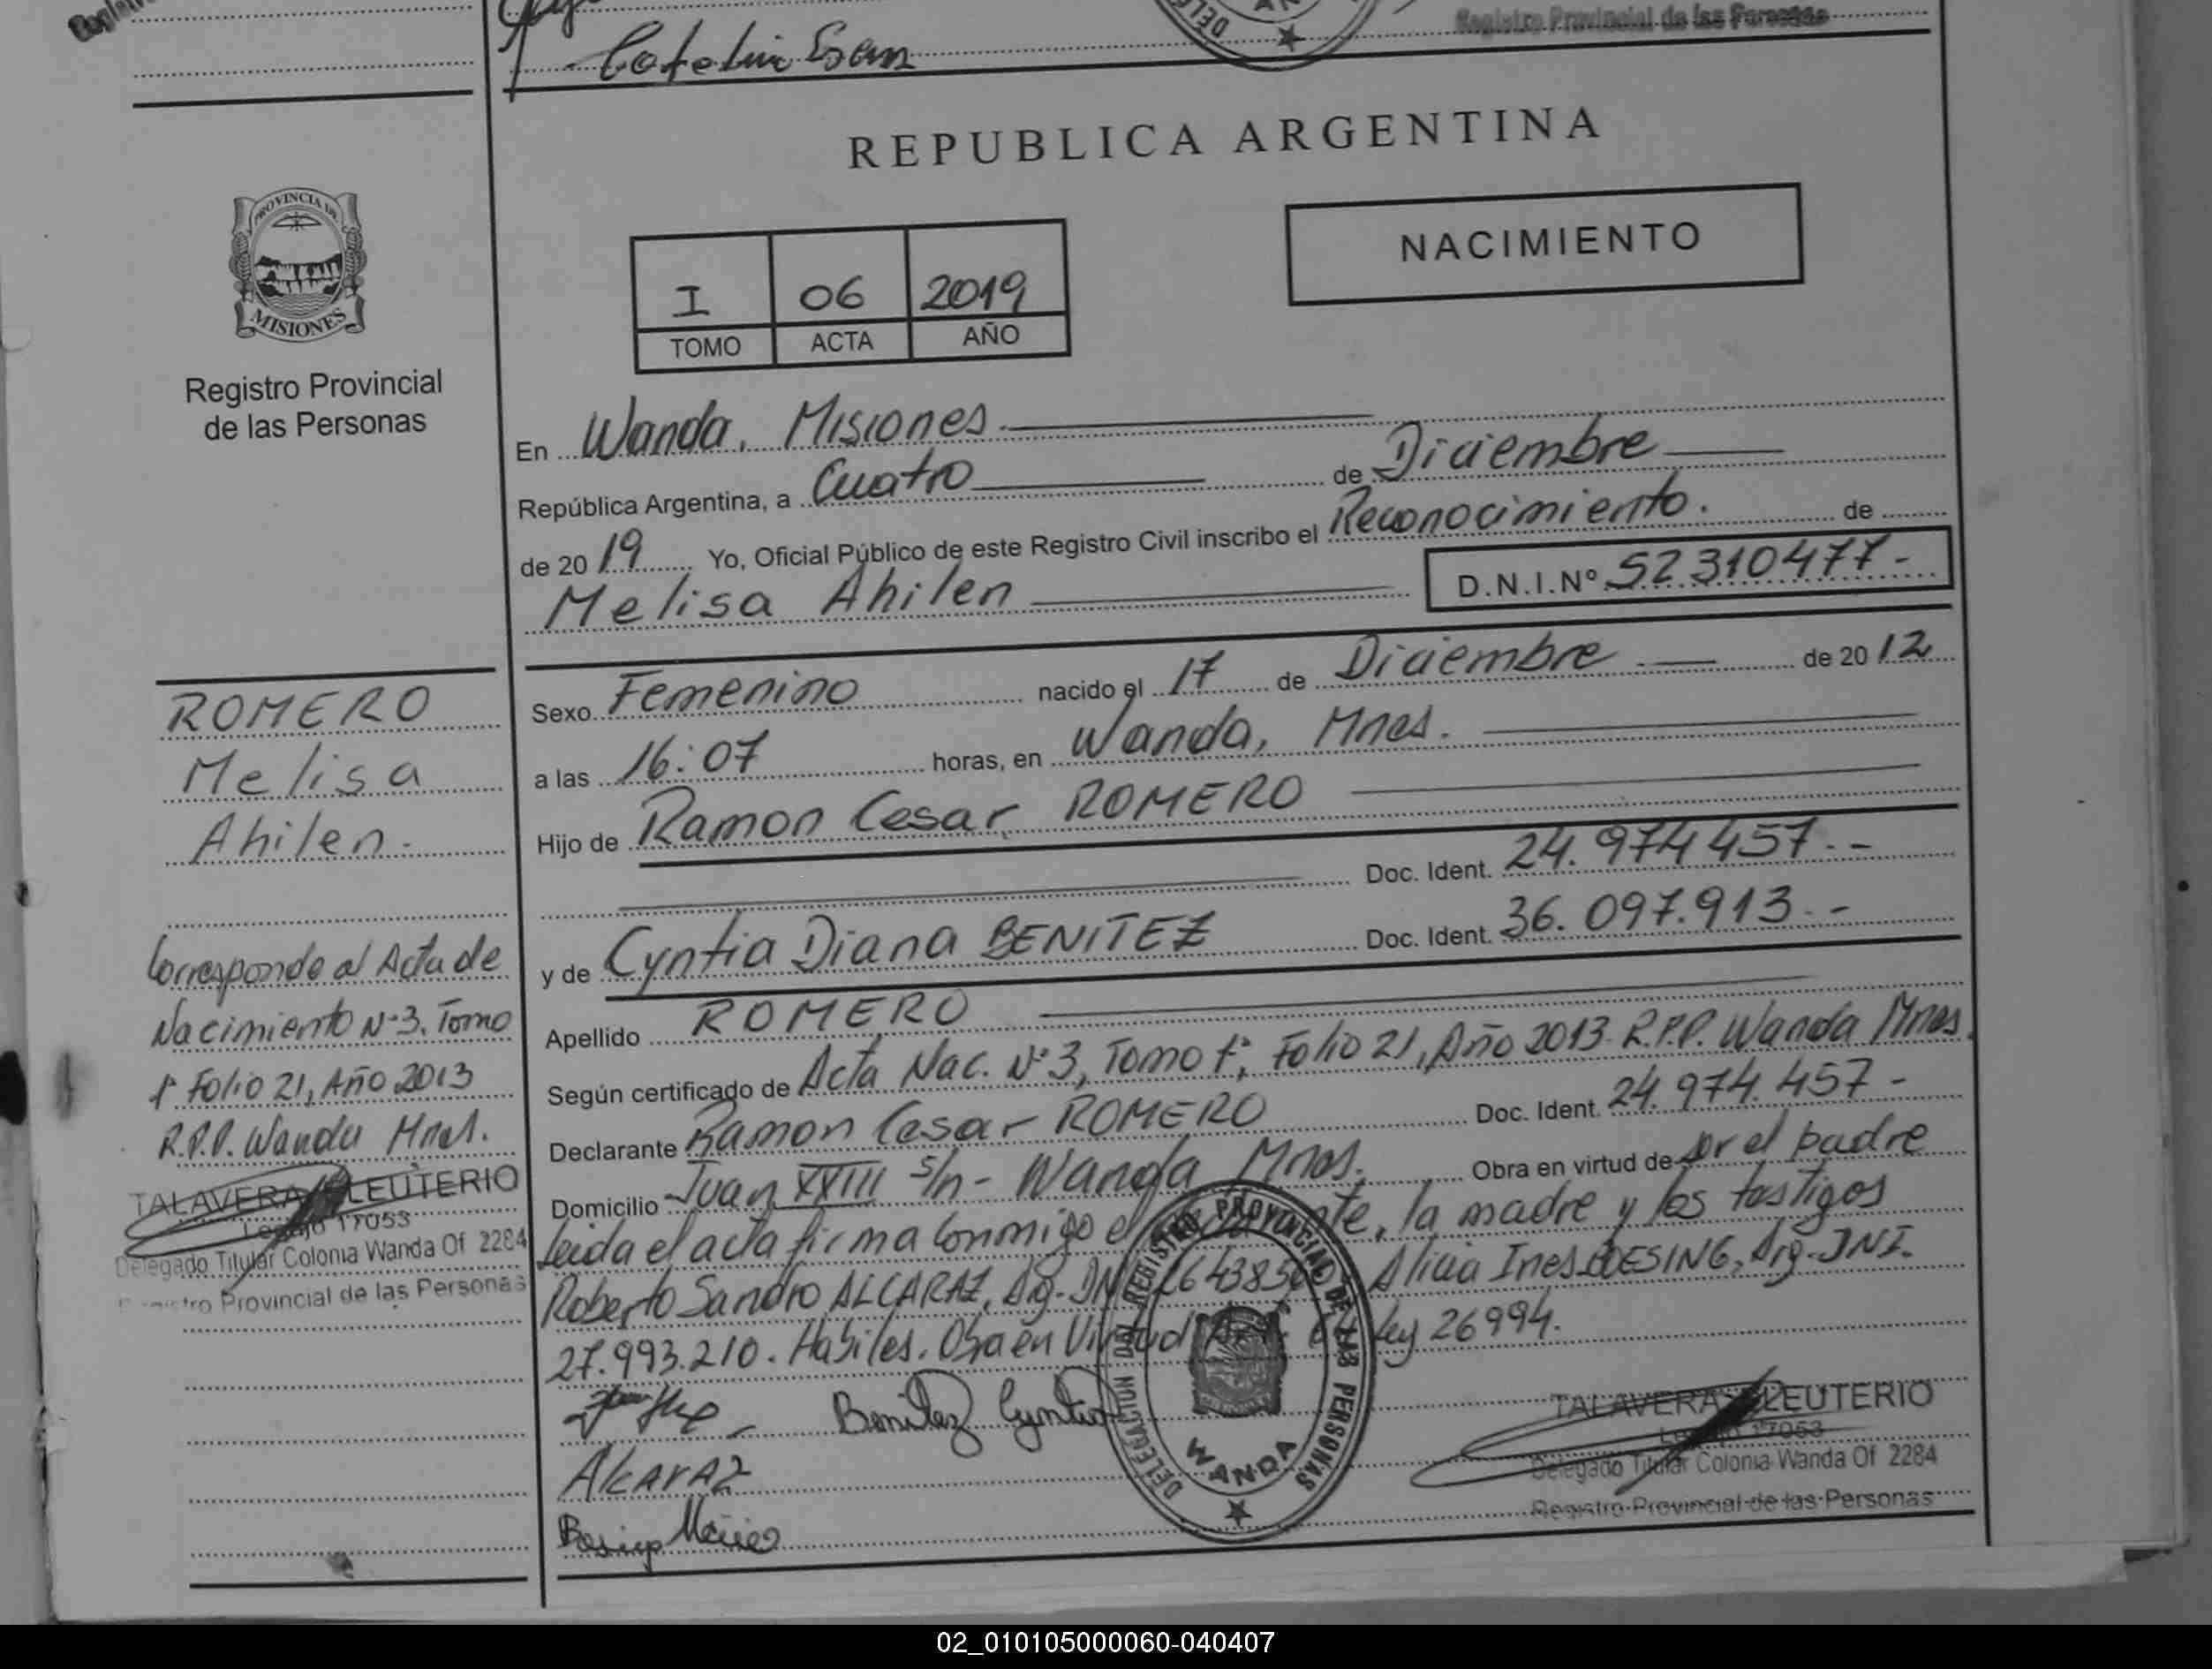 Catelin Esem
Registro Provincial de las Personas
REPUBLICA ARGENTINA
PROVINCIA DE
MISIONES
Registro Provincial
de las Personas
NACIMIENTO
I 06 2019
TOMO ACTA AÑO
En Wanda, Misiones
República Argentina, a Cuatro de Diciembre
de 2019 Yo, Oficial Público de este Registro Civil inscribo el Reconocimiento. de
Melisa Ahilen D.N.I.Nº 52310477-
ROMERO
Melisa
Ahilen.
Sexo Femenino nacido el 17 de Diciembre de 2012
a las 16:07 horas, en Wanda, Mnes.
Hijo de Ramon Cesar ROMERO
Doc. Ident. 24.974457.-
y de Cyntia Diana BENITEZ Doc. Ident. 36.097.913.-
Apellido ROMERO
Según certificado de Acta Nac. Nº3, Tomo 1º, Folio 21, Año 2013. R.P.P. Wanda Mnes.
Declarante Ramon Cesar ROMERO Doc. Ident. 24.974.457-
Domicilio Juan XXIII s/n - Wanda Mnes. Obra en virtud de ser el padre
Leida el acta firma conmigo el declarante, la madre y los testigos
Roberto Sandro ALCARAZ, Arg-DNI Alicia Ines BOESING, Arg-DNI.
27.993.210. Habiles. Obra en Virtud Ley 26994.
Corresponde al Acta de
Nacimiento Nº3. Tomo
1º Folio 21, Año 2013
R.P.P. Wanda Mnes.
TALAVERA ELEUTERIO
Legajo 17053
Delegado Titular Colonia Wanda Of 2284
Registro Provincial de las Personas
Benitez Cyntia
ALCARAZ
DELEGACION DEL REGISTRO PROVINCIAL DE LAS PERSONAS
WANDA
TALAVERA ELEUTERIO
Legajo 17053
Delegado Titular Colonia Wanda Of 2284
Registro Provincial de las Personas
02_010105000060-040407